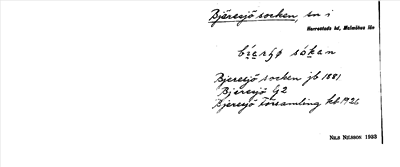 Bjäresjö socken, sn i
Herrestads hd, Malmöhus län
sokan
Bjeresjö socken jb 1881
Bjeresjö G2
Bjeresjö Församling kb 1926
NILS NILSSON 1933